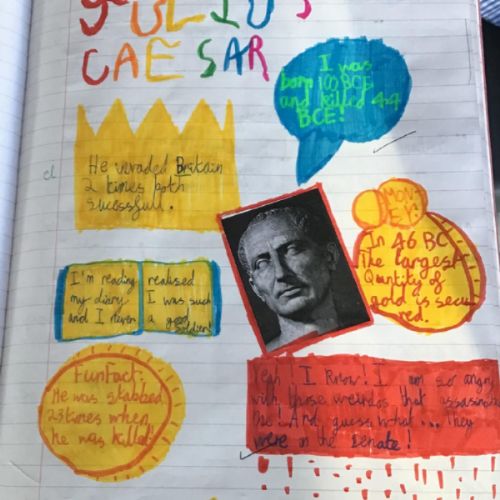 JULIUS
CAESAR
I was
born 100 BCE
and killed 44
BCE!
cl
He invaded Britain
2 times both
sucessfull.
MON
EY:
In 46 BC
The largest
Quantity of
gold is secu
red.
I'm reading
my diary
and I never
realised
I was such
a good
soldier!
Fun Fact:
He was stabbed
23 times when
he was killed!
Yeah! I know! I am so angry
with those weirdos that assasinated
me! And guess what... They
were in the senate!